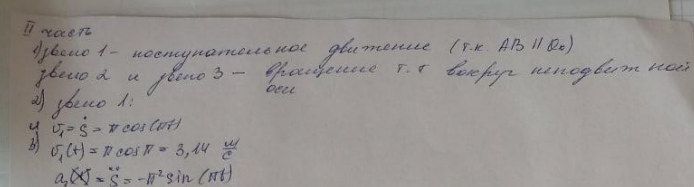 II часть
1) звено 1 - поступательное движение (т.к АВ || Ox)
звено 2 и звено 3 - вращение т.т вокруг неподвижной
оси
2) звено 1:
v₁ = ṡ = π cos(πt)
v₁(t) = π cos π = 3,14 м/с
a₁(t) = s̈ = -π² sin(πt)